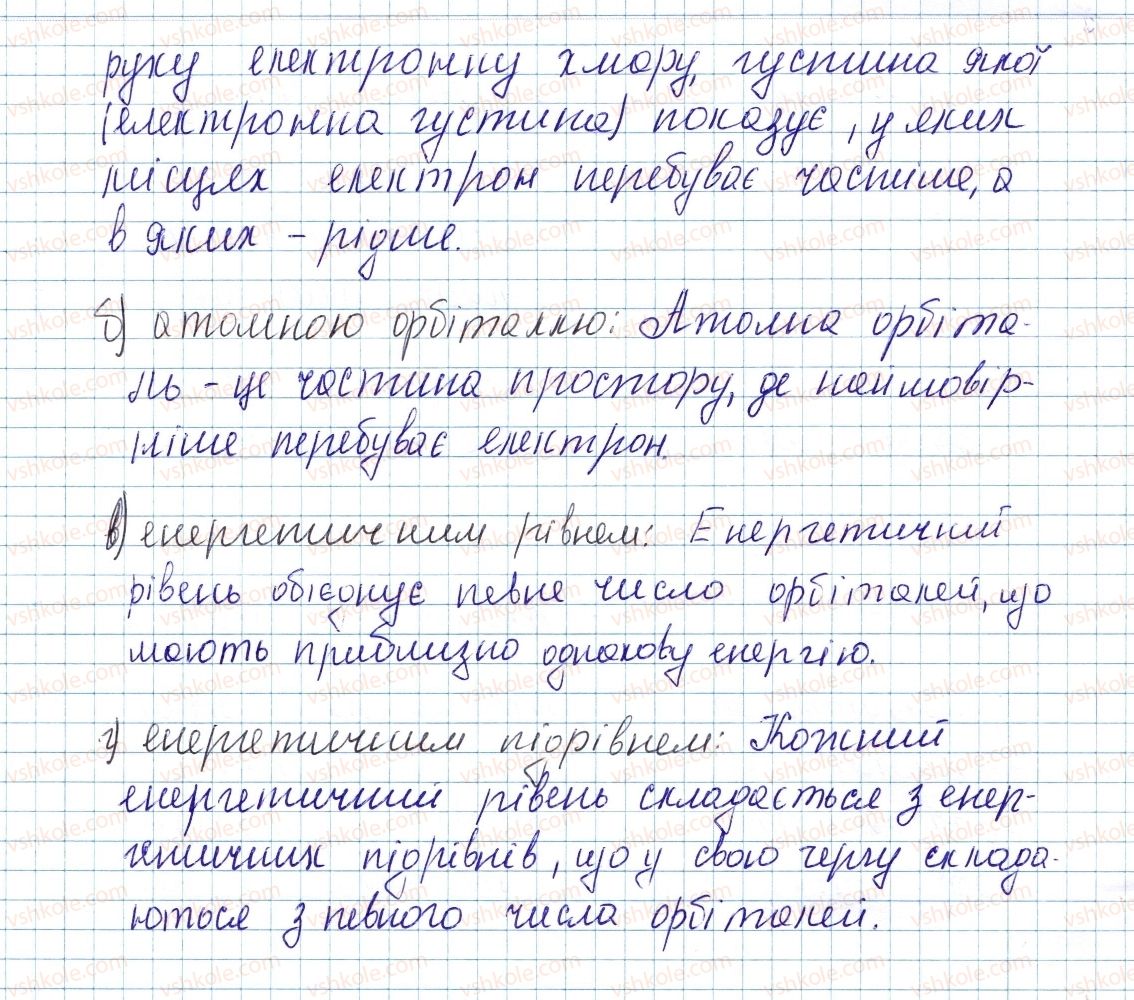 руху електронну хмару, густина якої
(електронна густина) показує, у яких
місцях електрон перебуває частіше, а
в яких – рідше.
б) атомною орбіталлю: Атомна орбіта-
ль – це частина простору, де найімовір-
ніше перебуває електрон.
в) енергетичним рівнем: Енергетичний
рівень обієднує певне число орбіталей, що
мають приблизно однакову енергію.
г) енергетичним підрівнем: Кожний
енергетичний рівень складається з енер-
гетичних підрівнів, що у свою чергу склада-
ються з певного числа орбіталей.